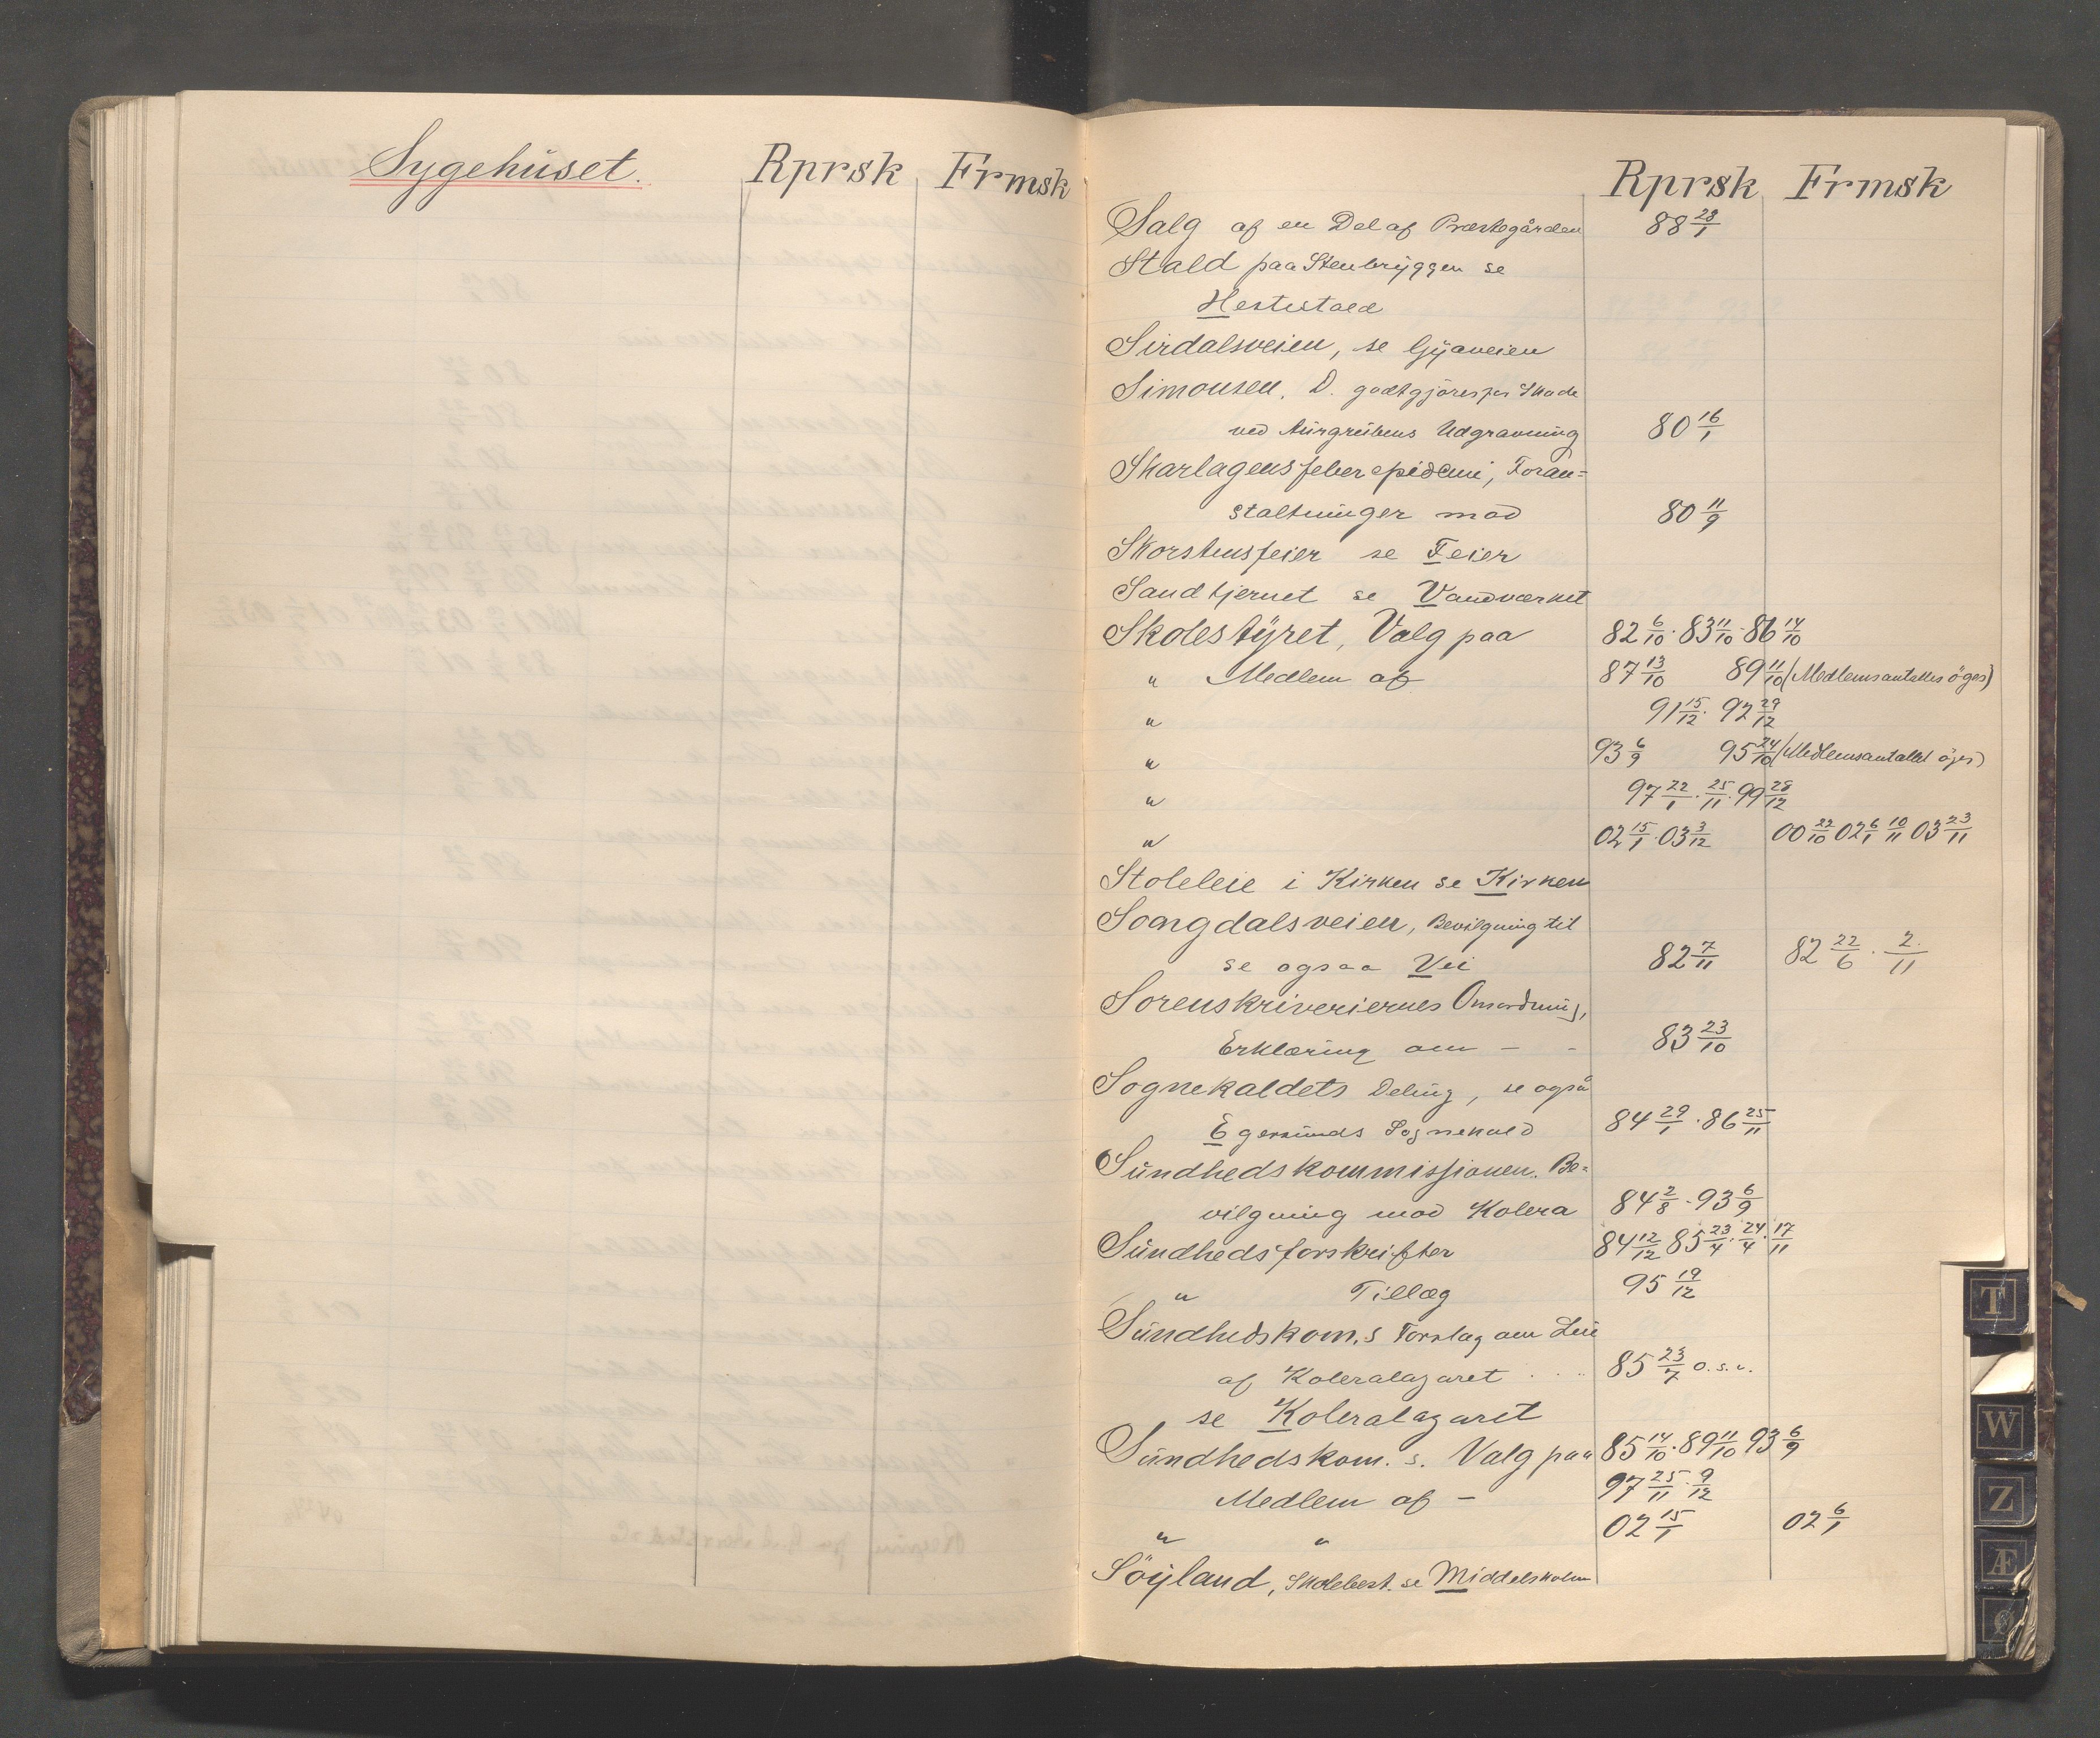 Sygehüset. Rprsk Frmsk
Rprsk Frmsk
Salg af en Del af Præstegården 88 28/1
Stald paa Stenbryggen se
Hestestald
Sirdalsveien, se Gyaveien
Simonsen, D. godtgjöres for Skade
ved Aurgrübens Udgravning 80 16/1
Skarlagensfeberepidemi, Foran=
staltninger mod 80 11/9
Skorstensfeier se Feier
Sandtjernet se Vandværket
Skolestÿret, Valg paa 82 6/10 · 83 11/10 · 86 14/10
" Medlem af 87 13/10 89 11/10 (Medlemsantallet öges)
" 91 15/12 · 92 29/12
" 93 6/9 95 24/10 (Medlemsantallet öges)
" 97 22/1 · 25/11 · 99 28/12
" 02 15/1 · 03 3/12 00 22/10 02 6/1 10/11 03 23/11
Stoleleie i Kirken se Kirken
Soangdalsveien, Bevilgning til
se ogsaa Vei 82 7/11 82 22/6 · 2/11
Sorenskriveriernes Omordning,
Erklæring om - - 83 23/10
Sognekaldets Deling, se også
Egersunds Sognekald 84 29/1 · 86 25/11
Sündhedskommissjonen. Be=
vilgning mod Kolera 84 2/8 · 93 6/9
Sündhedsforskrifter 84 12/12 85 23/4 · 24/4 · 17/11
" Tillæg 95 19/12
Sündhedskom.s Forslag om Leie
af Koleralazaret 85 23/7 o.s.v.
se Koleralazaret
Sündhedskom. s. Valg paa 85 14/10 · 89 11/10 93 6/9
Medlem af - 97 25/11 · 9/12
" " 02 15/1 02 6/1
Söÿland, Skolebest. se Middelskolen
T
W
Z
Æ
Ø